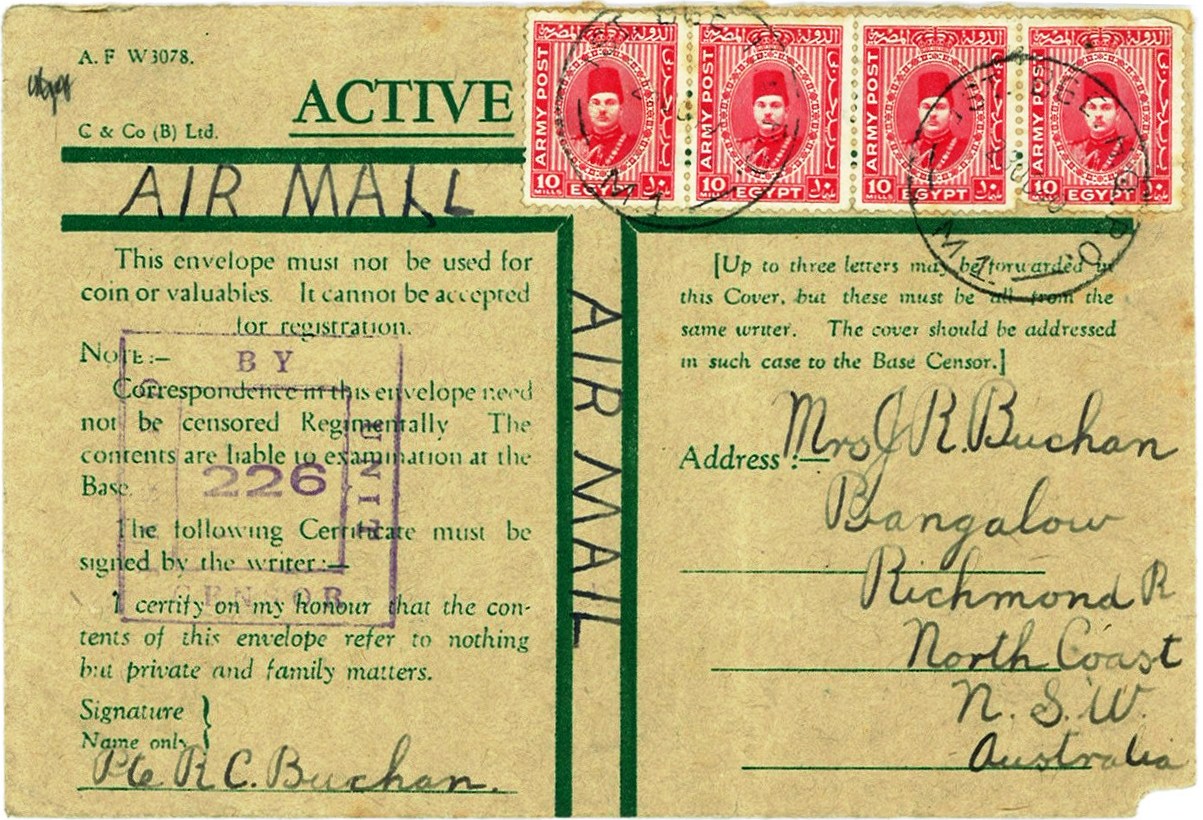 A. F W3078.
ACTIVE
C & Co (B) Ltd.
ARMY POST
10 MILLS EGYPT ١٠
ARMY POST
10 MILLS EGYPT ١٠
ARMY POST
10 MILLS EGYPT ١٠
ARMY POST
10 MILLS EGYPT ١٠
AIR MAIL
This envelope must not be used for
coin or valuables. It cannot be accepted
for registration.
NOTE :—
Correspondence in this envelope need
not be censored Regimentally The
contents are liable to examination at the
Base.
The following Certificate must be
signed by the writer :—
I certify on my honour that the con-
tents of this envelope refer to nothing
but private and family matters.
Signature
Name only
Pte R C. Buchan.
BY
UNIT
CENSOR
226
AIR MAIL
[Up to three letters may be forwarded in
this Cover, but these must be all from the
same writer. The cover should be addressed
in such case to the Base Censor.]
Address :—
Mrs J R. Buchan
Bangalow
Richmond R
North Coast
N. S. W.
Australia